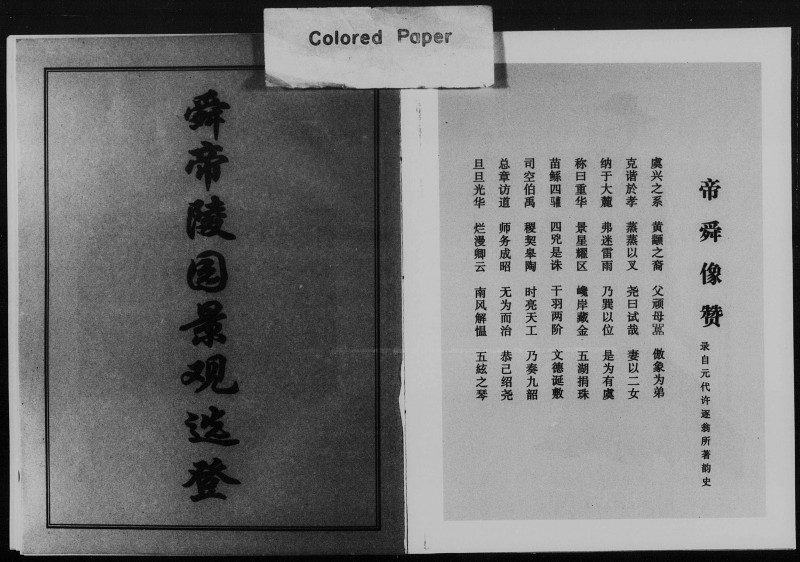 Colored Paper
舜帝陵园景观选登
帝舜像赞
录自元代许逐翁所著韵史
虞兴之系 黄颛之裔 父顽母嚚 傲象为弟
克谐於孝 蒸蒸以叉 尧曰试哉 妻以二女
纳于大麓 弗迷雷雨 乃巽以位 是为有虞
称曰重华 景星耀区 巉岸藏金 五湖捐珠
苗鲧四驩 四兇是诛 干羽两阶 文德诞敷
司空伯禹 稷契皋陶 时亮天工 乃奏九韶
总章访道 师务成昭 无为而治 恭己绍尧
旦旦光华 烂漫卿云 南风解愠 五絃之琴